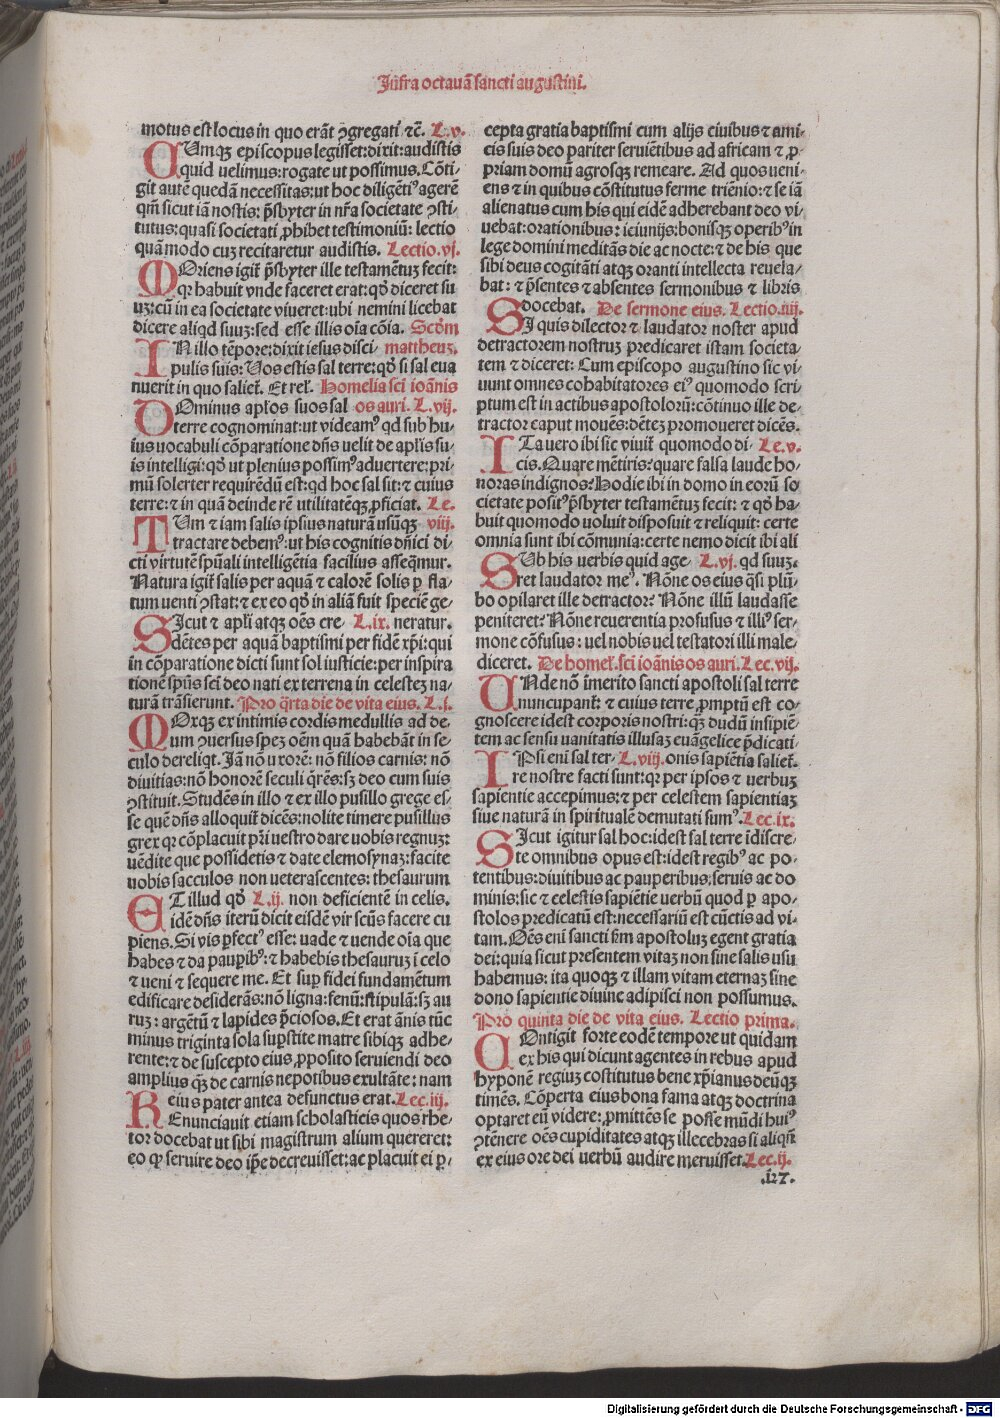 Infra octauā sancti augustini.
motus est locus in quo erāt ꝯgregati ⁊c̄. L.v.
CUmqꝫ episcopus legisset: dixit: audistis
quid uelimus: rogate ut possimus. Cōti-
git autē quedā necessitas: ut hoc diligētiꝰ agerē
qm̄ sicut iā nostis: p̄sbyter in nr̄a societate ꝯsti-
tutus: quasi societati ꝓhibet testimoniū: lectio
quā modo cuꝫ recitaretur audistis. Lectio.vj.
MOriens igit̄ p̄sbyter ille testamētuꝫ fecit:
qꝛ habuit vnde faceret erat: qd̄ diceret su
uꝫ: cū in ea societate viueret: ubi nemini licebat
dicere aliqd suuꝫ: sed esse illis oīa cōīa. Scd̄m
IN illo tēpore: dixit iesus disci- mattheuꝫ.
pulis suis: Uos estis sal terre: qd̄ si sal eua
nuerit in quo saliet̄. Et rel̄. Homelia sci ioānis
DOminus apl̄os suos sal os auri. L.vij.
terre cognominat: ut videamꝰ qd sub hu-
ius uocabuli cōparatione dn̄s uelit de apl̄is su-
is intelligi: qd̄ ut plenius possimꝰ aduertere: pri-
mū solerter requirēdū est: qd hoc sal sit: ⁊ cuius
terre: ⁊ in quā deinde rē utilitatēqꝫ ꝓficiat. Le.
TUm ⁊ iam salis ipsius naturā usūqꝫ viij.
tractare debemꝰ: ut his cognitis dn̄ici di-
cti virtutē spūali intelligētia facilius asseq̄mur.
Natura igit̄ salis per aquā ⁊ calorē solis ꝑ fla-
tum uenti ꝯstat: ⁊ ex eo qd̄ in aliā fuit speciē ge-
SIcut ⁊ apl̄i atqꝫ oēs cre- L.ix. neratur.
dētes per aquā baptismi per fidē xp̄i: qui
in cōparatione dicti sunt sol iusticie: per inspira
tionē spūs sci deo nati ex terrena in celesteꝫ na-
turā trāsierunt. Pro q̄rta die de vita eius. L.j.
MOxqꝫ ex intimis cordis medullis ad de-
um ꝯuersus speꝫ oēm quā habebāt in se-
culo dereliqt. Iā nō uxorē: nō filios carnis: nō
diuitias: nō honorē seculi q̄rēs: sꝫ deo cum suis
ꝯstituit. Studēs in illo ⁊ ex illo pusillo grege es-
se quē dn̄s alloquit̄ dicēs: nolite timere pusillus
grex qꝛ cōplacuit pr̄i vestro dare uobis regnuꝫ:
uēdite que possidetis ⁊ date elemosynaꝫ: facite
uobis sacculos non ueterascentes: thesaurum
ET illud qd̄ L.ij. non deficientē in celis.
idē dn̄s iterū dicit eisdē vir scūs facere cu
piens. Si vis ꝑfectꝰ esse: uade ⁊ uende oīa que
habes ⁊ da pauꝑibꝰ: ⁊ habebis thesauruꝫ ī celo
⁊ ueni ⁊ sequere me. Et suꝑ fidei fundamētum
edificare desiderās: nō ligna: fenū: stipulā: sꝫ au
ruꝫ: argētū ⁊ lapides p̄ciosos. Et erat ānis tūc
minus triginta sola supstite matre sibiqꝫ adhe-
rente: ⁊ de suscepto eius ꝓposito seruiendi deo
amplius qꝫ de carnis nepotibus exultāte: nam
eius pater antea defunctus erat. Lec.iij.
REnunciauit etiam scholasticis quos rhe-
tor docebat ut sibi magistrum alium quererēt:
eo qꝛ seruire deo ip̄e decreuisset: ac placuit ei ꝑ-
cepta gratia baptismi cum alijs ciuibus ⁊ ami-
cis suis deo pariter seruiētibus ad africam ⁊ ꝓ-
priam domū agrosqꝫ remeare. Ad quos ueni-
ens ⁊ in quibus cōstitutus ferme triēnio: ⁊ se iā
alienatus cum his qui eidē adherebant deo vi-
uebat: orationibus: ieiunijs: bonisqꝫ operibꝰ in
lege domini meditās die ac nocte: ⁊ de his que
sibi deus cogitāti atqꝫ oranti intellecta reuela-
bat: ⁊ p̄sentes ⁊ absentes sermonibus ⁊ libris
docebat. De sermone eius. Lectio.iiij.
SI quis dilector ⁊ laudator noster apud
detractorem nostruꝫ predicaret istam societa-
tem ⁊ diceret: Cum episcopo augustino sic vi-
uunt omnes cohabitatores eiꝰ quomodo scri-
ptum est in actibus apostolorū: cōtinuo ille de-
tractor caput mouēs: dēteꝫ promoueret dicēs.
ITa vero ibi sic viuit̄ quomodo di- Le.v.
cis. Quare mētiris? quare falsa laude ho-
noras indignos? Hodie ibi in domo in eorū so
cietate positꝰ p̄sbyter testamētuꝫ fecit: ⁊ qd̄ ha-
buit quomodo uoluit disposuit ⁊ reliquit: certe
omnia sunt ibi cōmunia: certe nemo dicit ibi ali
SUb his uerbis quid age- L.vj. qd suuꝫ.
ret laudator meꝰ. Nōne os eius q̄si plū-
bo opilaret ille detractor? Nōne illū laudasse
peniteret? Nōne reuerentia profusus ⁊ illiꝰ ser-
mone cōfusus: uel nobis uel testatori illi male-
diceret. De homel̄. sci ioānis os auri. Lec.vij.
UNde nō imerito sancti apostoli sal terre
nuncupant̄: ⁊ cuius terre ꝓmptū est co-
gnoscere idest corporis nostri: qꝫ dudū insipiē-
tem ac sensu uanitatis illusaꝫ euāgelice p̄dicati-
IPsi eni sal ter- L.viij. onis sapiētia saliet̄.
re nostre facti sunt: qꝛ per ipsos ⁊ uerbuꝫ
sapientie accepimus: ⁊ per celestem sapientiaꝫ
siue naturā in spiritualē demutati sumꝰ. Lec.ix.
SIcut igitur sal hoc: idest sal terre īdiscre-
te omnibus opus est: idest regibꝰ ac po-
tentibus: diuitibus ac pauperibus: seruis ac do
minis: sic ⁊ celestis sapiētie uerbū quod ꝑ apo-
stolos predicatū est: necessariū est cūctis ad vi-
tam. Oēs eni sancti s̄m apostoluꝫ egent gratia
dei: quia sicut presentem vitaꝫ non sine salis usu
habemus: ita quoqꝫ ⁊ illam vitam eternaꝫ sine
dono sapientie diuine adipisci non possumus.
Pro quinta die de vita eius. Lectio prima.
COntigit forte eodē tempore ut quidam
ex his qui dicunt agentes in rebus apud
hyponē regiuꝫ cōstitutus bene xp̄ianus deūqꝫ
timēs. Cōperta eius bona fama atqꝫ doctrina
optaret eū videre: ꝓmittēs se posse mūdi huiꝰ
ꝯtēnere oēs cupiditates atqꝫ illecebras si aliqn̄
ex eius ore dei uerbū audire meruisset. Lec.ij.
.127.
Digitalisierung gefördert durch die Deutsche Forschungsgemeinschaft - DFG